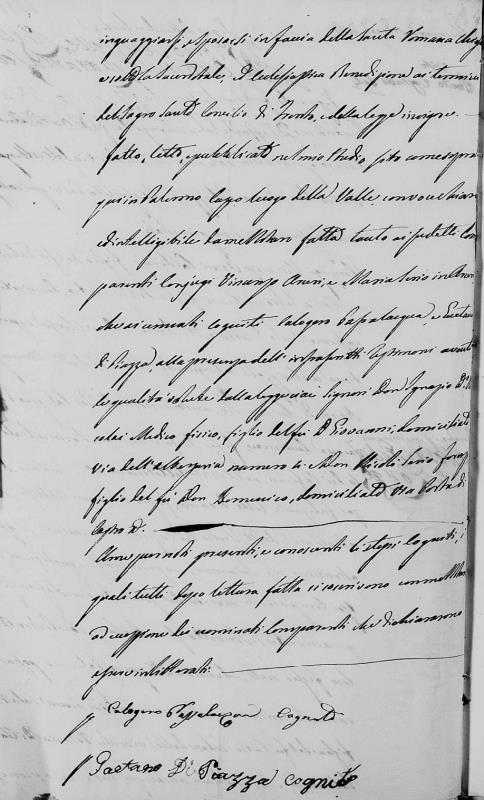 inguaggiarsi, e sposarsi in faccia della Santa Romana Chiesa
e sotto la sacerdotale, ed ecclesiastica Benedizione ai termini
del Sagro Santo Concilio di Trento, e della legge in vigore.
Fatto, letto, e pubblicato nel mio studio, sito come sopra
qui in Palermo Capo luogo della Valle, con voce chiara
ed intelligibile da me Notaro fatta tanto ai sudetti Com
parenti Conjugi Vincenzo Aneri, e Maria Iorio in Aneri
che ai cennati cogniti Calogero Passalacqua, e Gaetano
di Piazza, alla presenza dell' infrascritti Testimoni aventi
le qualità volute dalla legge, cioè Signori Don Ignazio
colai Medico fisico, figlio del fu D. Giovanni, domiciliato
via dell' albergaria numero e Don Nicolò Iorio
figlio del fu Don Domenico, domiciliato Via Porta di
Castro
A me pur noti presenti, e conoscenti li stessi cogniti, i
quali tutti dopo lettura fatta si scrivono con me Notaro
ad eccezione dei nominati Comparenti che dichiararono
essere inlitterati.
Calogero Passalacqua Cognito
Gaetano Di Piazza cognito